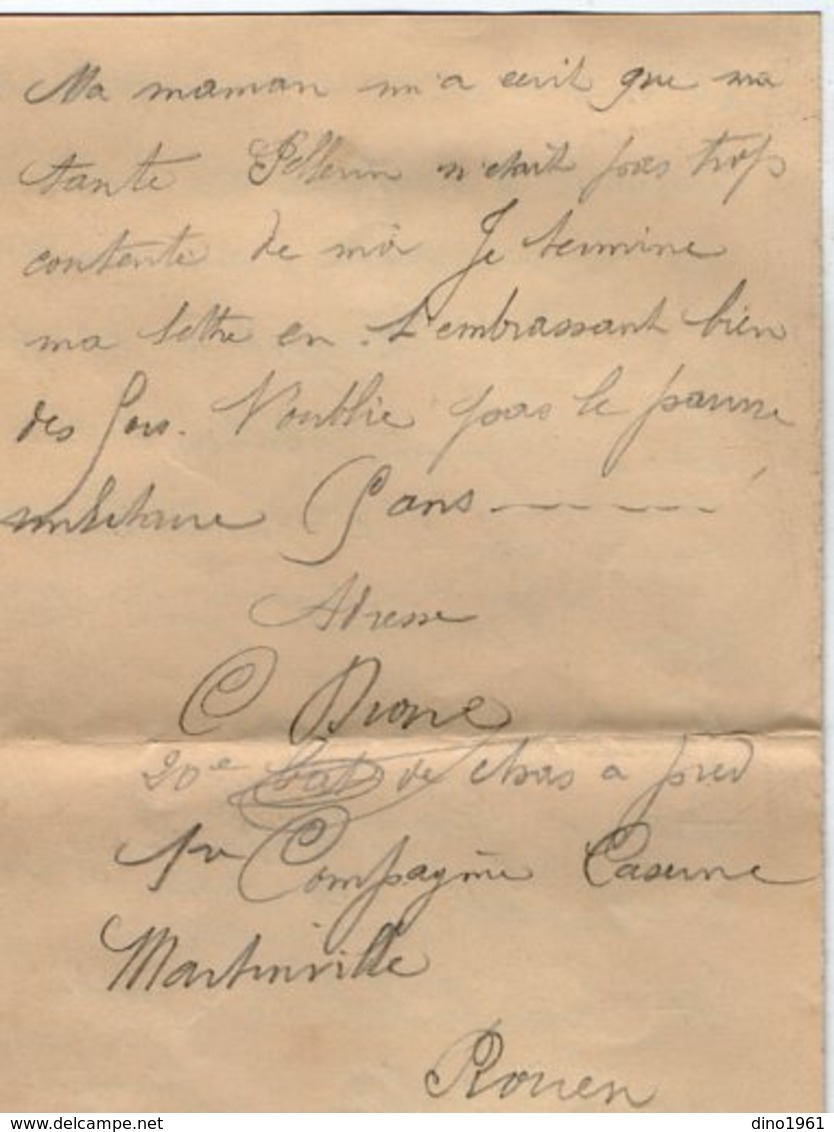 Ma maman m'a ecrit que ma
tante Pellerin n'etait pas trop
contente de moi Je termine
ma lettre en t'embrassant bien
des fois. N'oublie pas le pauvre
militaire
Adresse
C
20e Bat de chas a pied
1re Compagnie Caserne
Martinville
Rouen
delcampe.net
dino1961